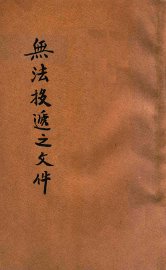 無法投遞之文件